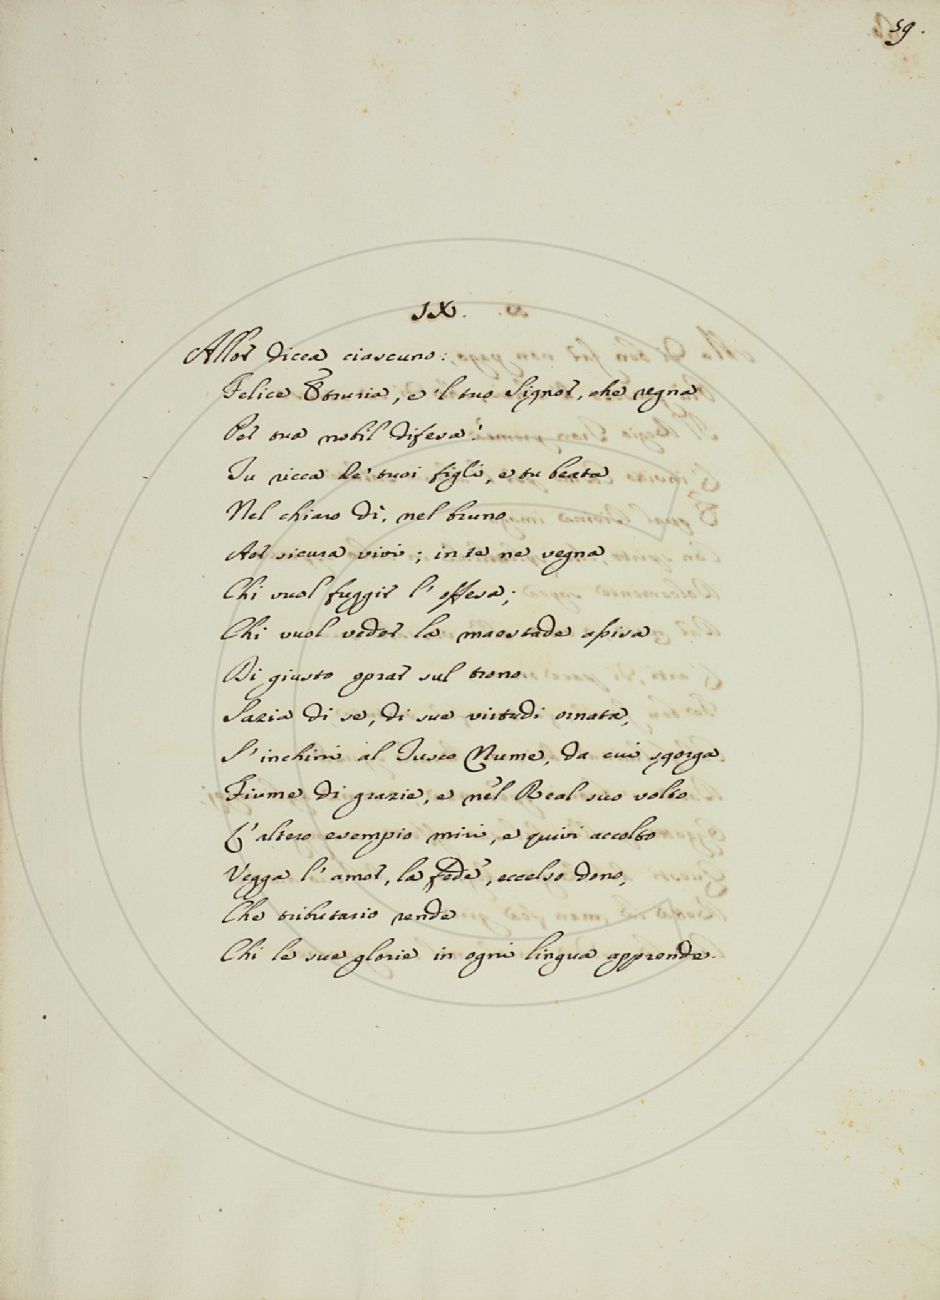 59.
IX.
Allor dicea ciascuno:
Felice Etruria, e 'l tuo Signor, che regna
Per tua nobil difesa!
Tu ricca de' tuoi figli, e tu beata
Nel chiaro dì, nel bruno
Aer sicura vivi; in te ne vegna
Chi vuol fuggir l'offesa;
Chi vuol veder la maestade assisa
Di giusto oprar sul trono
Sazia di se, di sue virtudi ornata,
S'inchini al Tusco Nume, da cui sgorga
Fiume di grazie, e nel Real suo volto
L'altero esempio miri, e quivi accolto
Vegga l'amor, la fede, eccelso dono,
Che tributario rende
Chi le sue glorie in ogni lingua apprende.